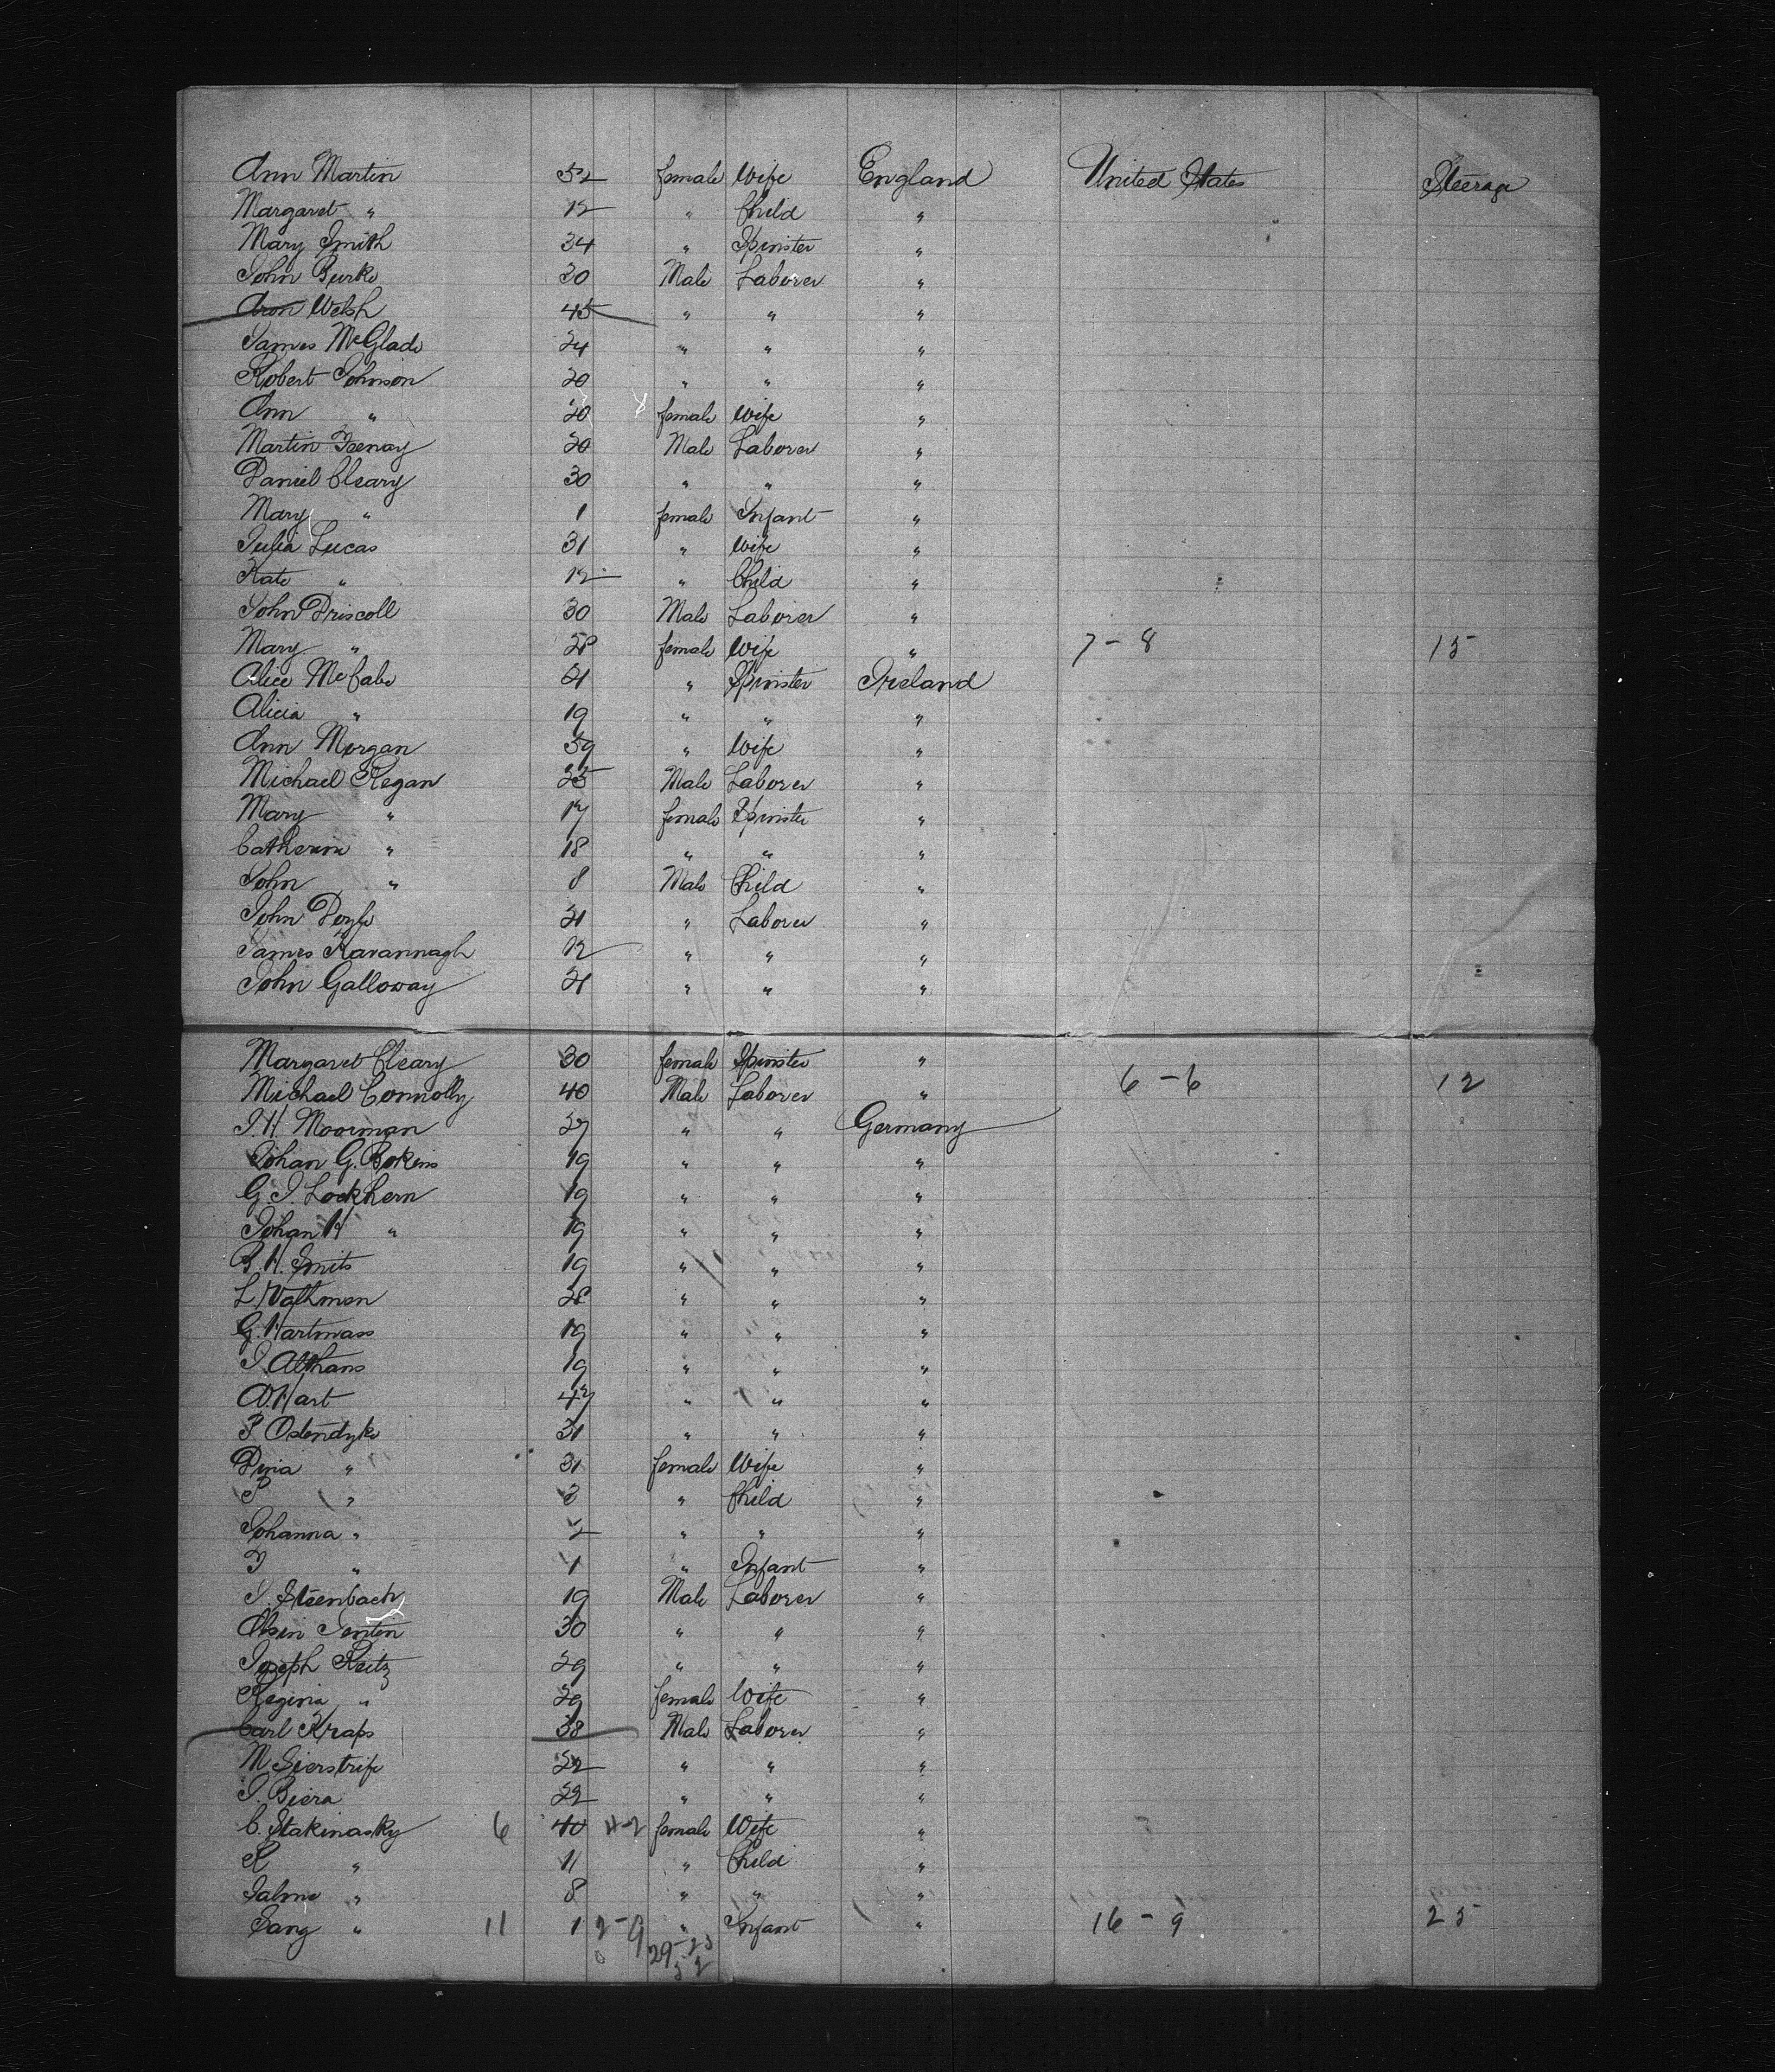 Ann Martin 52 female Wife England United States Steerage
Margaret " 12 " Child "
Mary Smith 34 " Spinster "
John Burke 30 Male Laborer "
Aron Welsh 45 " " "
James McGlade 24 " " "
Robert Johnson 20 " " "
Ann " 20 female Wife "
Martin 20 Male Laborer "
Daniel Cleary 30 " " "
Mary " 1 female Infant "
Julia Lucas 31 " Wife "
Kate " 12 " Child "
John Driscoll 30 Male Laborer "
Mary " 28 female Wife " 7 - 8 15
Alice McCabe 21 " Spinster Ireland
Alicia " 19 " " "
Ann Morgan 59 " Wife "
Michael Regan 25 Male Laborer "
Mary " 17 female Spinster "
Catherine " 18 " " "
John " 8 Male Child "
John Doyle 21 " Laborer "
James Kavannagh 12 " " "
John Galloway 21 " " "
Margaret Cleary 30 female Spinster "
Michael Connolly 40 Male Laborer " 6 - 6 12
J.H. Moorman 27 " " Germany
Johan G. Bokens 19 " " "
G. J. Lockhern 19 " " "
Johan H " 19 " " "
B.H. Smits 19 " " "
L Vathmen 28 " " "
G. Hartmass 19 " " "
J. Althans 19 " " "
A. Hart 47 " " "
P Ostendyke 31 " " "
Dina " 31 female Wife "
P " 3 " Child "
Johanna " 2 " " "
" 1 " Infant "
J. Steenbach 19 Male Laborer "
30 " " "
Joseph Reitz 29 " " "
Regina " 29 female Wife "
Carl Kraps 38 Male Laborer "
M Sierstrife 22 " " "
J. Biera 22 " " "
C. Stakinasky 6 40 4-2 female Wife "
R " 11 " Child "
" 8 " " "
Sang " 11 1 2-9 " Infant " 16 - 9 25
29-23